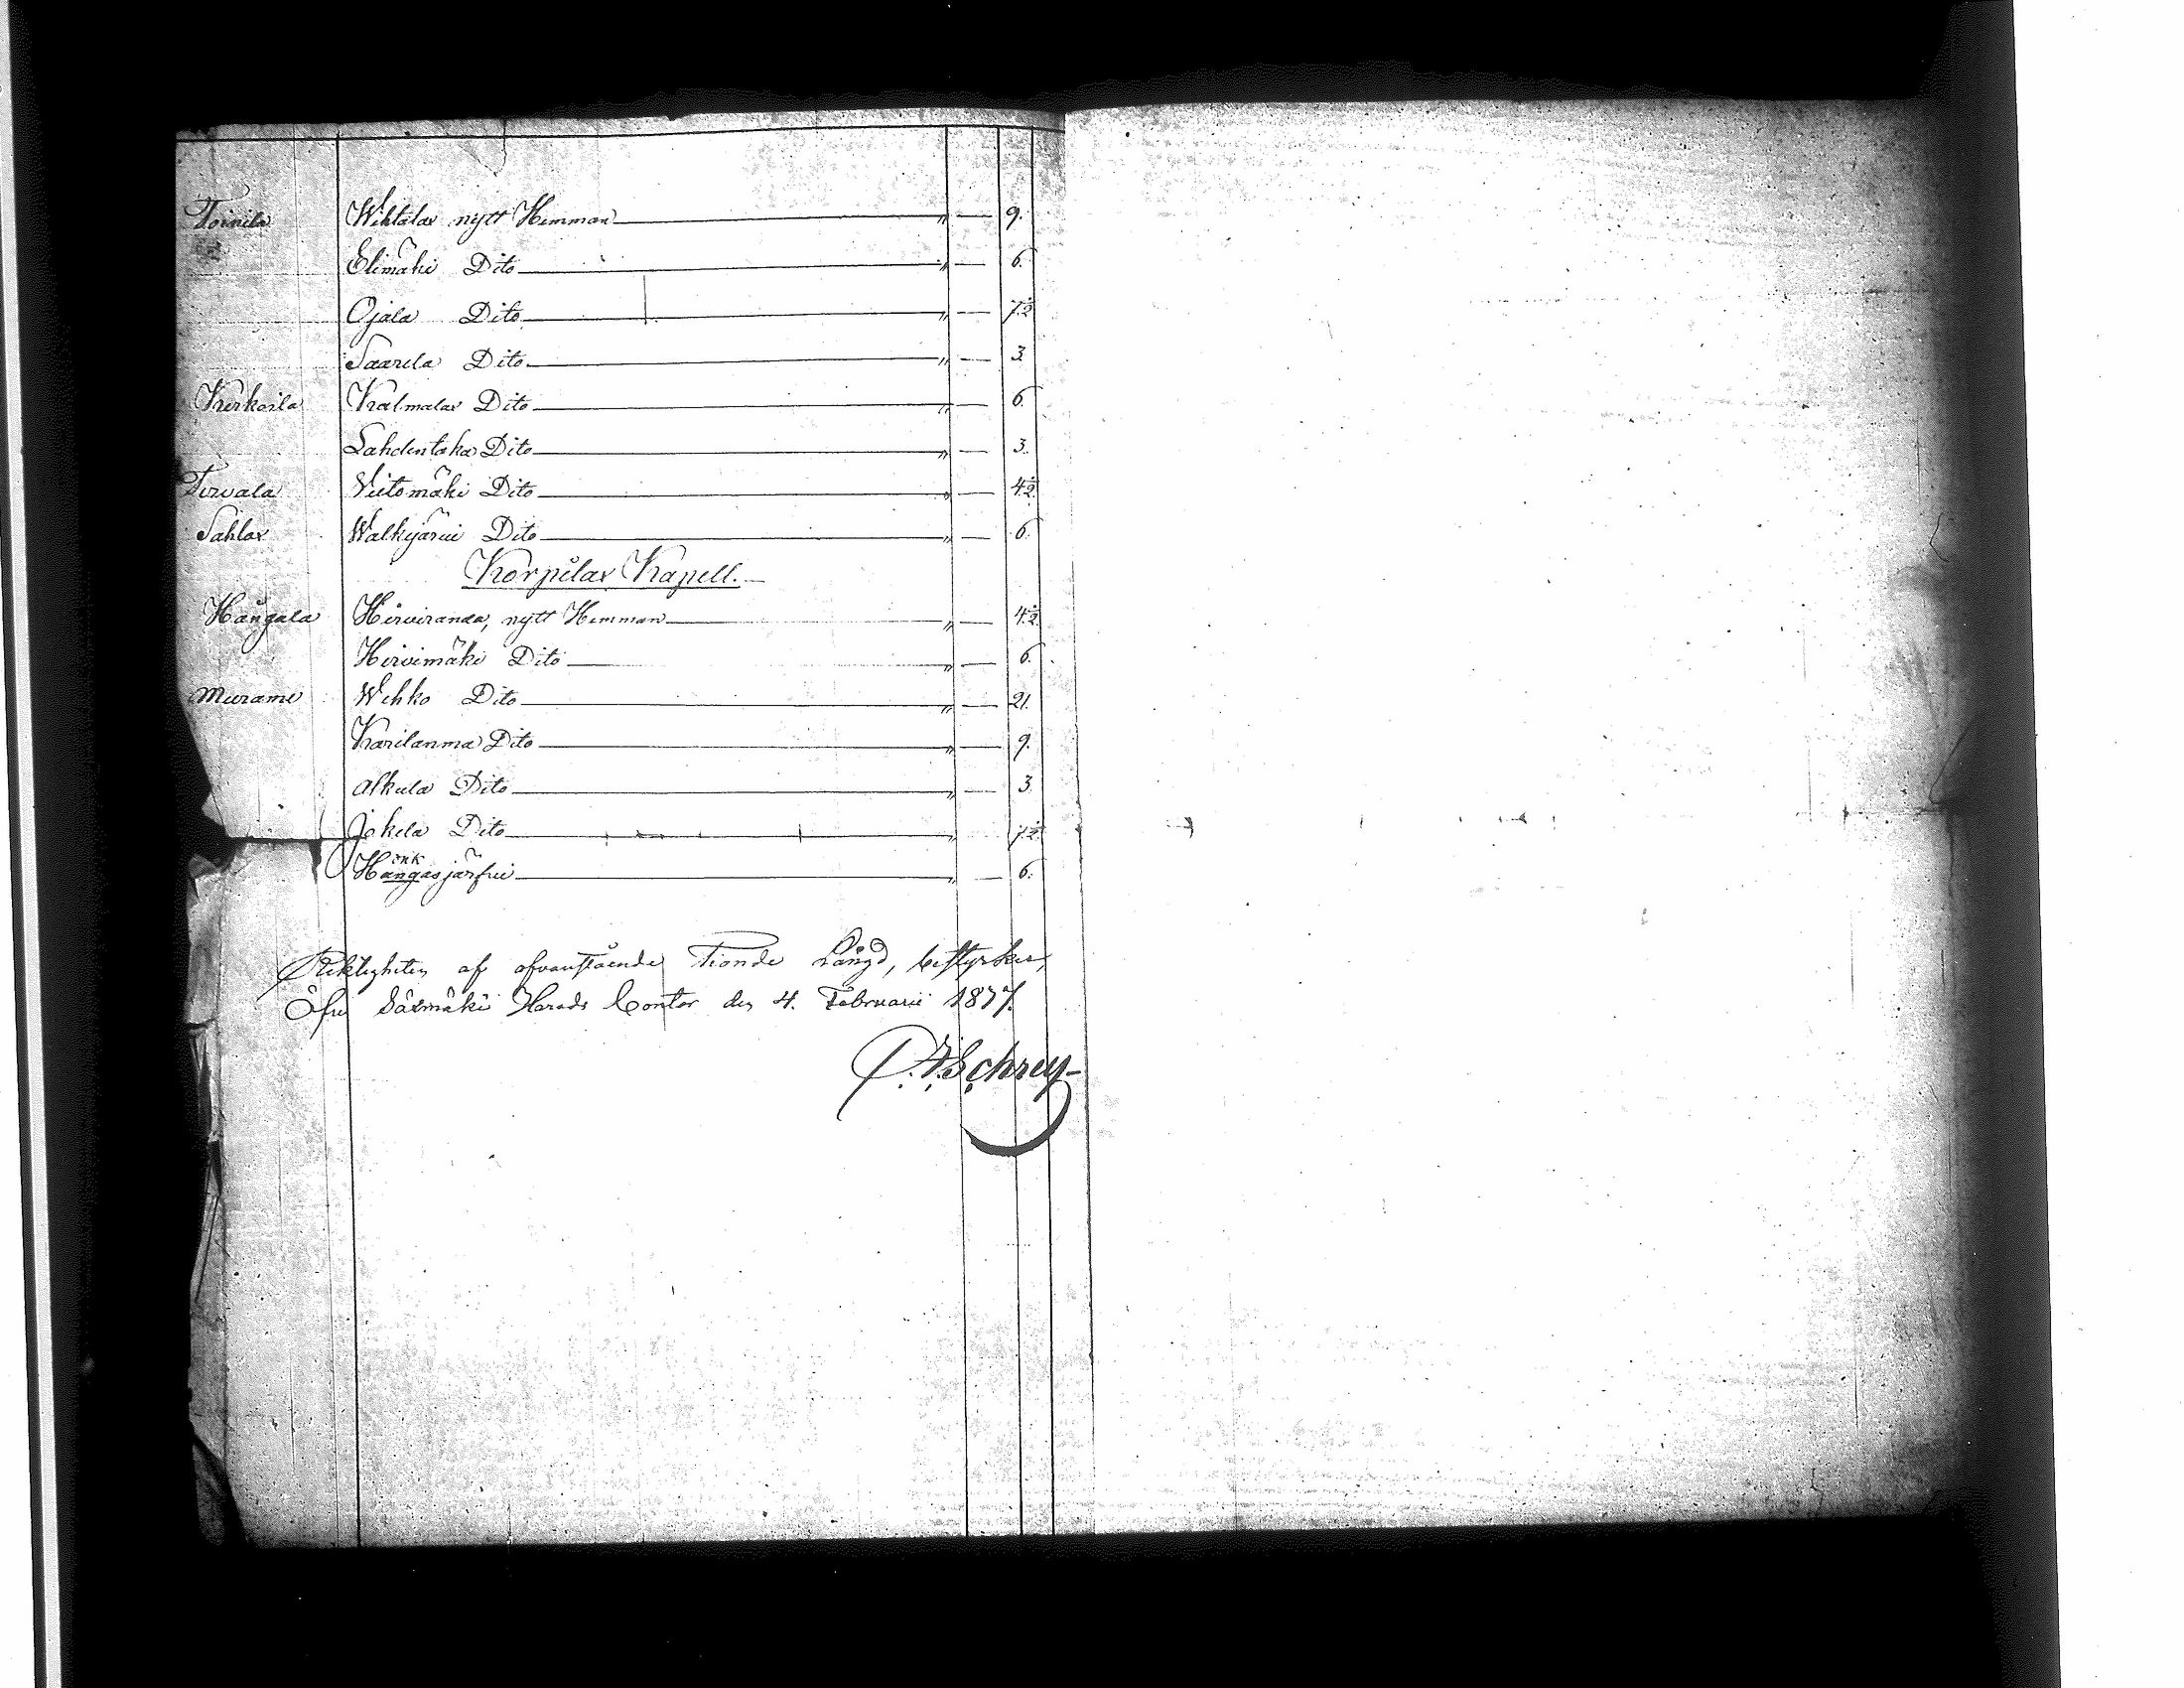 Toivila Wihtala nytt Hemman " — 9.
Elimäki Dito " — 6.
Ojala Dito " — 7½
Saarela Dito " — 3.
Kerkoila Kalmala Dito " — 6.
Lahdentaka Dito " — 3.
Tirvala Viitomäki Dito " — 4½
Sahla Walkijärvi Dito " — 6.
Korpilax Kapell.
Hangala Hirviranda, nytt Hemman " — 4½
Hirvimäki Dito " — 6.
Murame Wehko Dito " — 21.
Karilanma Dito " — 9.
Alkula Dito " — 3.
Jokela Dito " — 7½
önk
Hangasjärfvi " — 6.
Riktigheten af ofvanstående Tionde Längd, bestyrker,
Öfre Säxmäki Härads Contor den 4. Februarii 1837.
Schrey